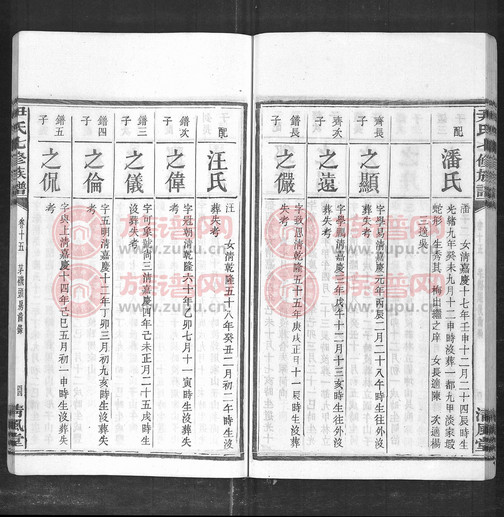 尹氏七修族譜
清風堂
配
潘氏
潘 女清嘉慶十七年壬申十二月二十四辰時生
光緒九年癸未九月十二申時沒葬一都九甲淡家
蛇形 生秀其 出繼之岸 女長適陳 次適楊
三適吳
齊長
子
之顯
字學易清嘉慶元年丙辰二月二十八午時生往外沒
葬失考
齊次
子
之遠
字學鵬清嘉慶三年戊午十二月十三亥時生往外沒
葬失考
鐠長
子
之儼
字致恩清乾隆五十五年庚戌正月十一辰時生沒葬
失考
配
汪氏
汪 女清乾隆五十八年癸丑二月初二午時生沒
葬失考
鐠次
子
之偉
字冠朝清乾隆六十年乙卯七月十一寅時生沒葬失
考
鐠三
子
之儀
字可象號尚三清嘉慶四年己未正月二十五戌時生
沒葬失考
鐠四
子
之倫
字五明清嘉慶十二年丁卯三月初九亥時生沒葬失
考
鐠五
子
之侃
字與上清嘉慶十四年己巳五月初一申時生沒葬失
考
尹氏七修族譜
卷十五
清風堂
族譜网
www.zupu.cn